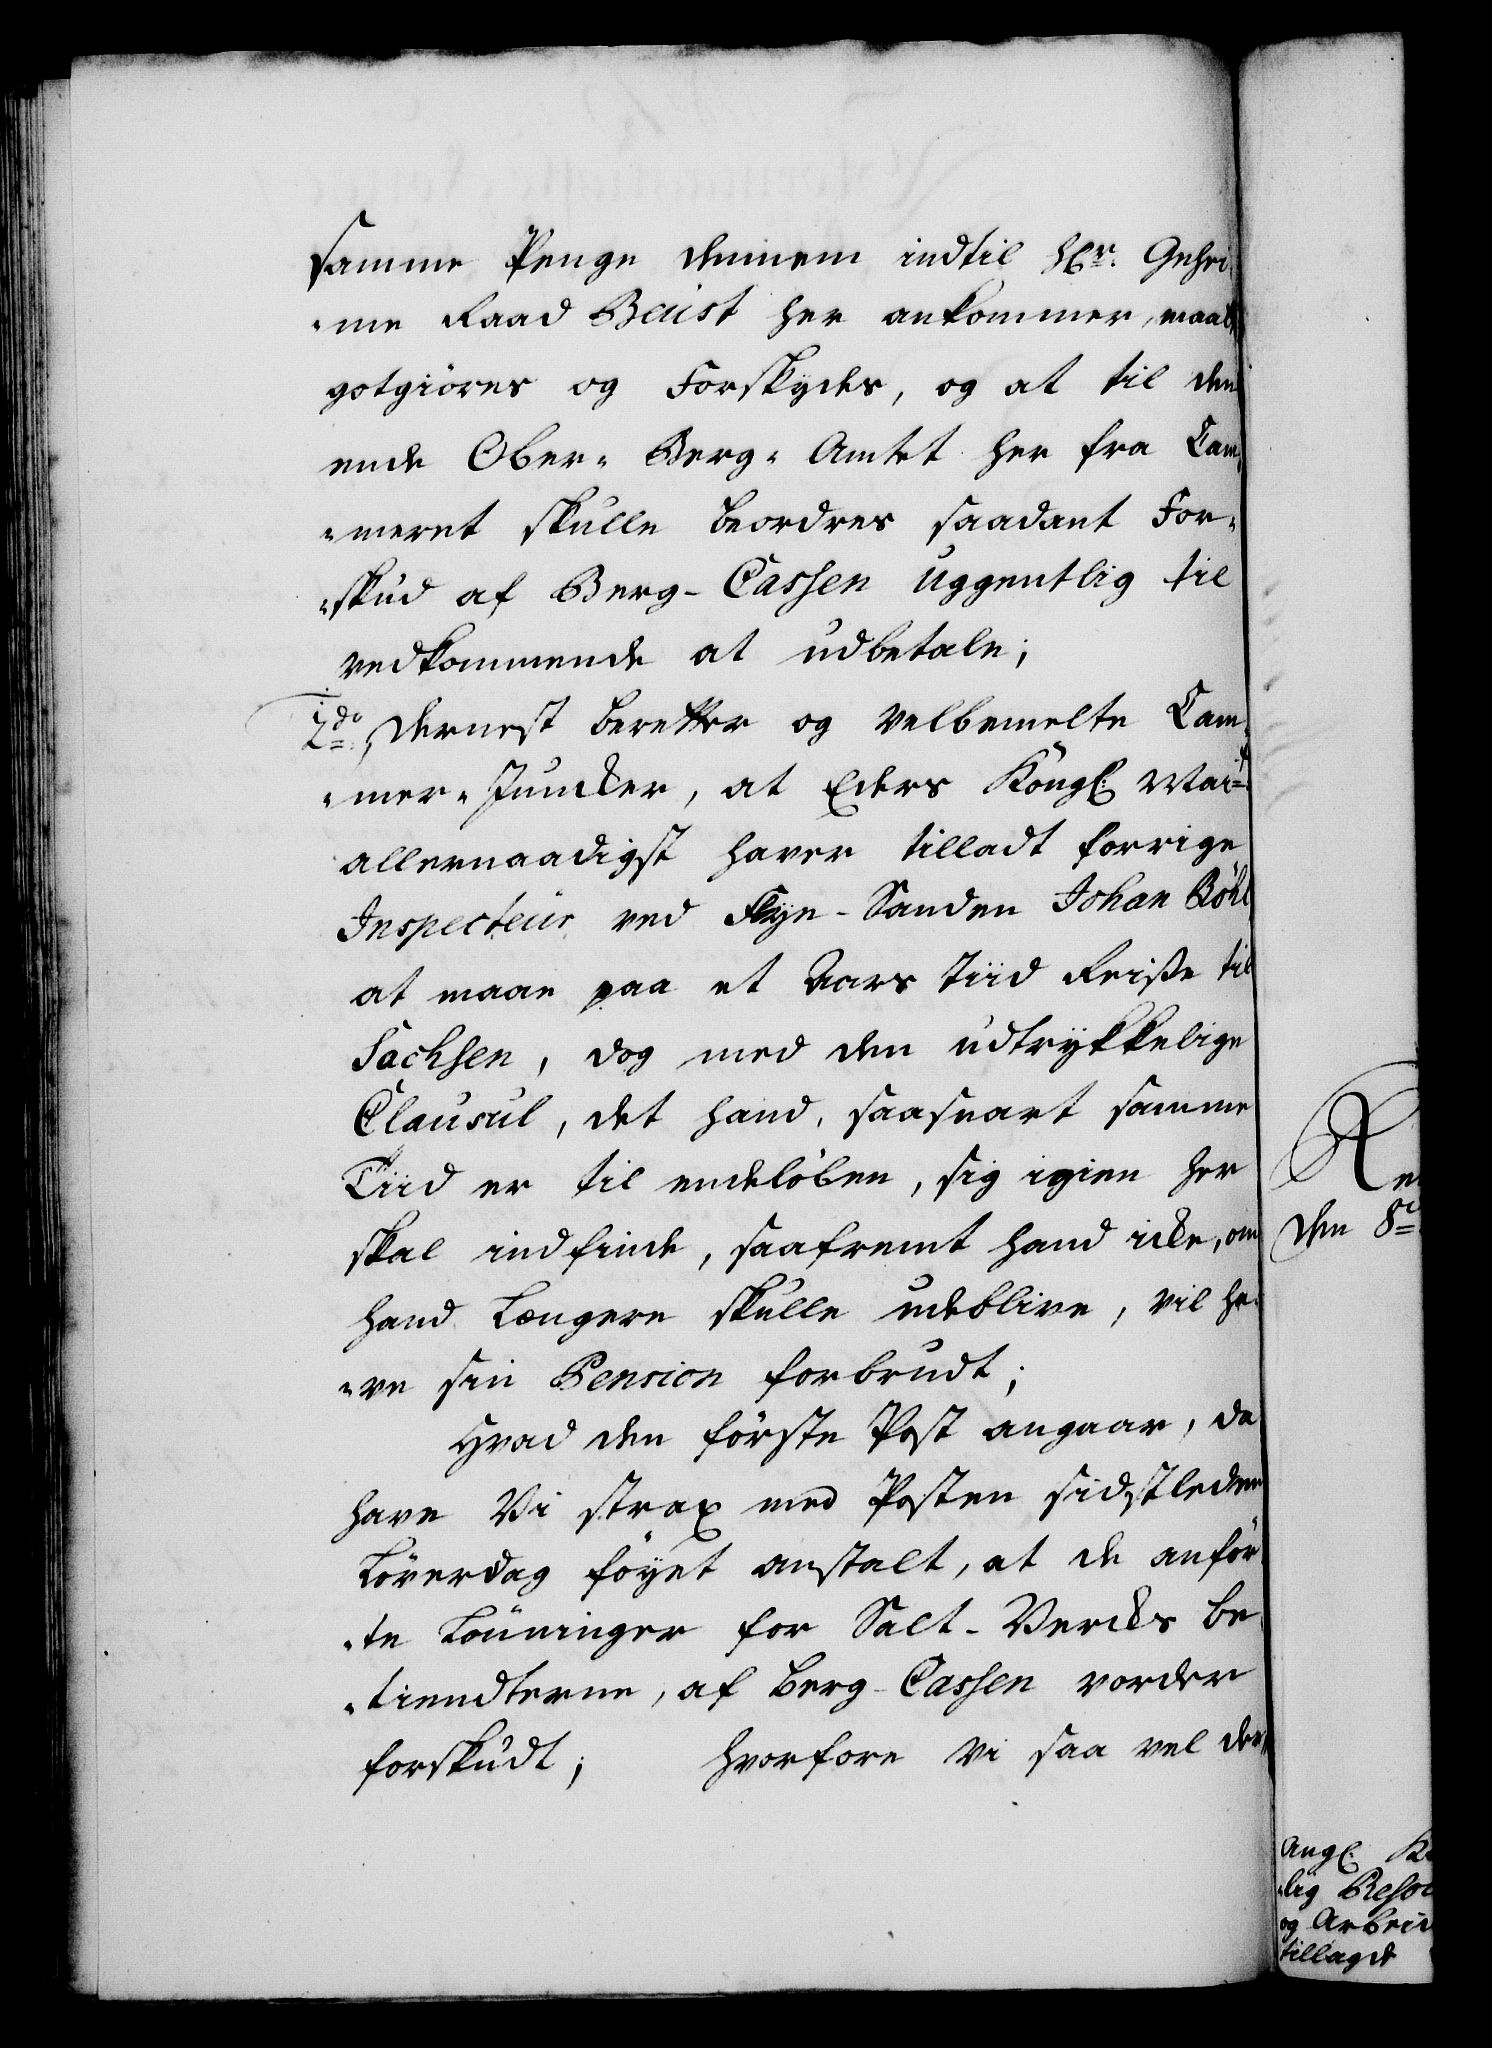 samme Penge dennem indtil Hr. Gehei-
-me Raad Beust her ankommer, maatte
gotgiöres og Forskydes, og at til den
ende Ober-Berg-Amtet her fra Cam-
-meret skulle beordres saadant For-
-skud af Berg-Cassen uggentlig til
vedkommende at udbetale;
2do Dernest beretter og velbemelte Cam-
-mer-Juncker, at Eders Köngl: Mait
allernaadigst haver tilladt forrige
Inspecteur ved Flye-Sanden Johan Röhl
at maae paa et Aars Tiid Reiße til
Sachsen, dog med den udtrykkelige
Clausul, det hand, saasnart samme
Tiid er til endeløben, sig igien her
skal indfinde, saafremt hand icke, om
hand Længere skulle udeblive, vil ha-
-ve sin Pension forbrudt;
Hvad den förste Post angaar, da
have Vi strax med Posten sidstleden
Löverdag föyet anstalt, at de anför-
-te Lönninger for Salt-Vercks be-
-tiendterne, af Berg-Cassen vorder
forskudt; hvorfore vi saa vel der
den 8
Angl.
-lig Resol
og Arbeid
tillagde